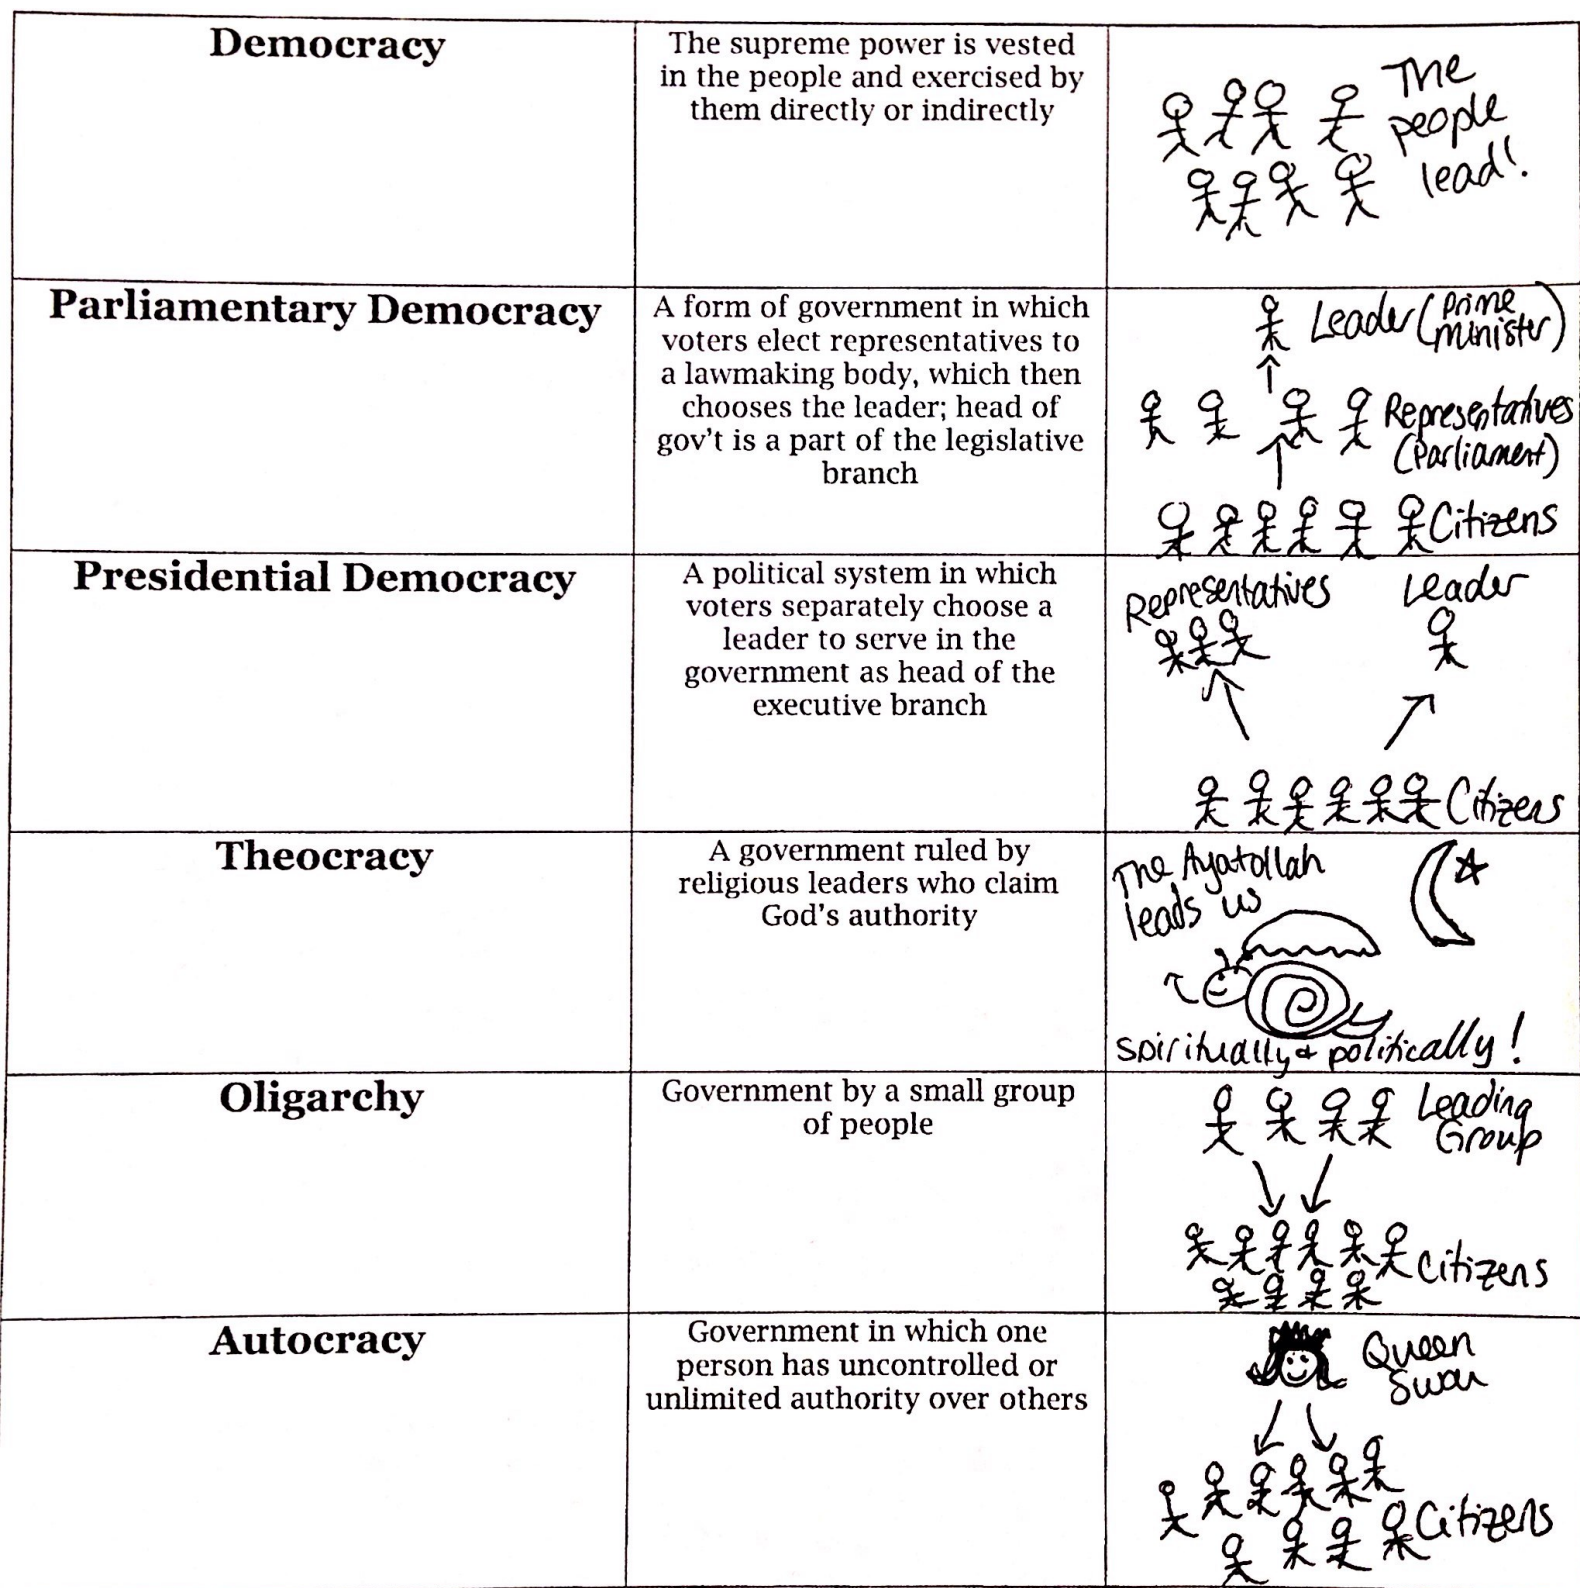 Democracy
The supreme power is vested
in the people and exercised by
them directly or indirectly
The
people
lead!
Parliamentary Democracy
A form of government in which
voters elect representatives to
a lawmaking body, which then
chooses the leader; head of
gov't is a part of the legislative
branch
Leader (prime
minister)
Representatives
(Parliament)
Citizens
Presidential Democracy
A political system in which
voters separately choose a
leader to serve in the
government as head of the
executive branch
Representatives
Leader
Citizens
Theocracy
A government ruled by
religious leaders who claim
God's authority
The Ayatollah
leads us
spiritually + politically!
Oligarchy
Government by a small group
of people
Leading
Group
Citizens
Autocracy
Government in which one
person has uncontrolled or
unlimited authority over others
Queen
Citizens